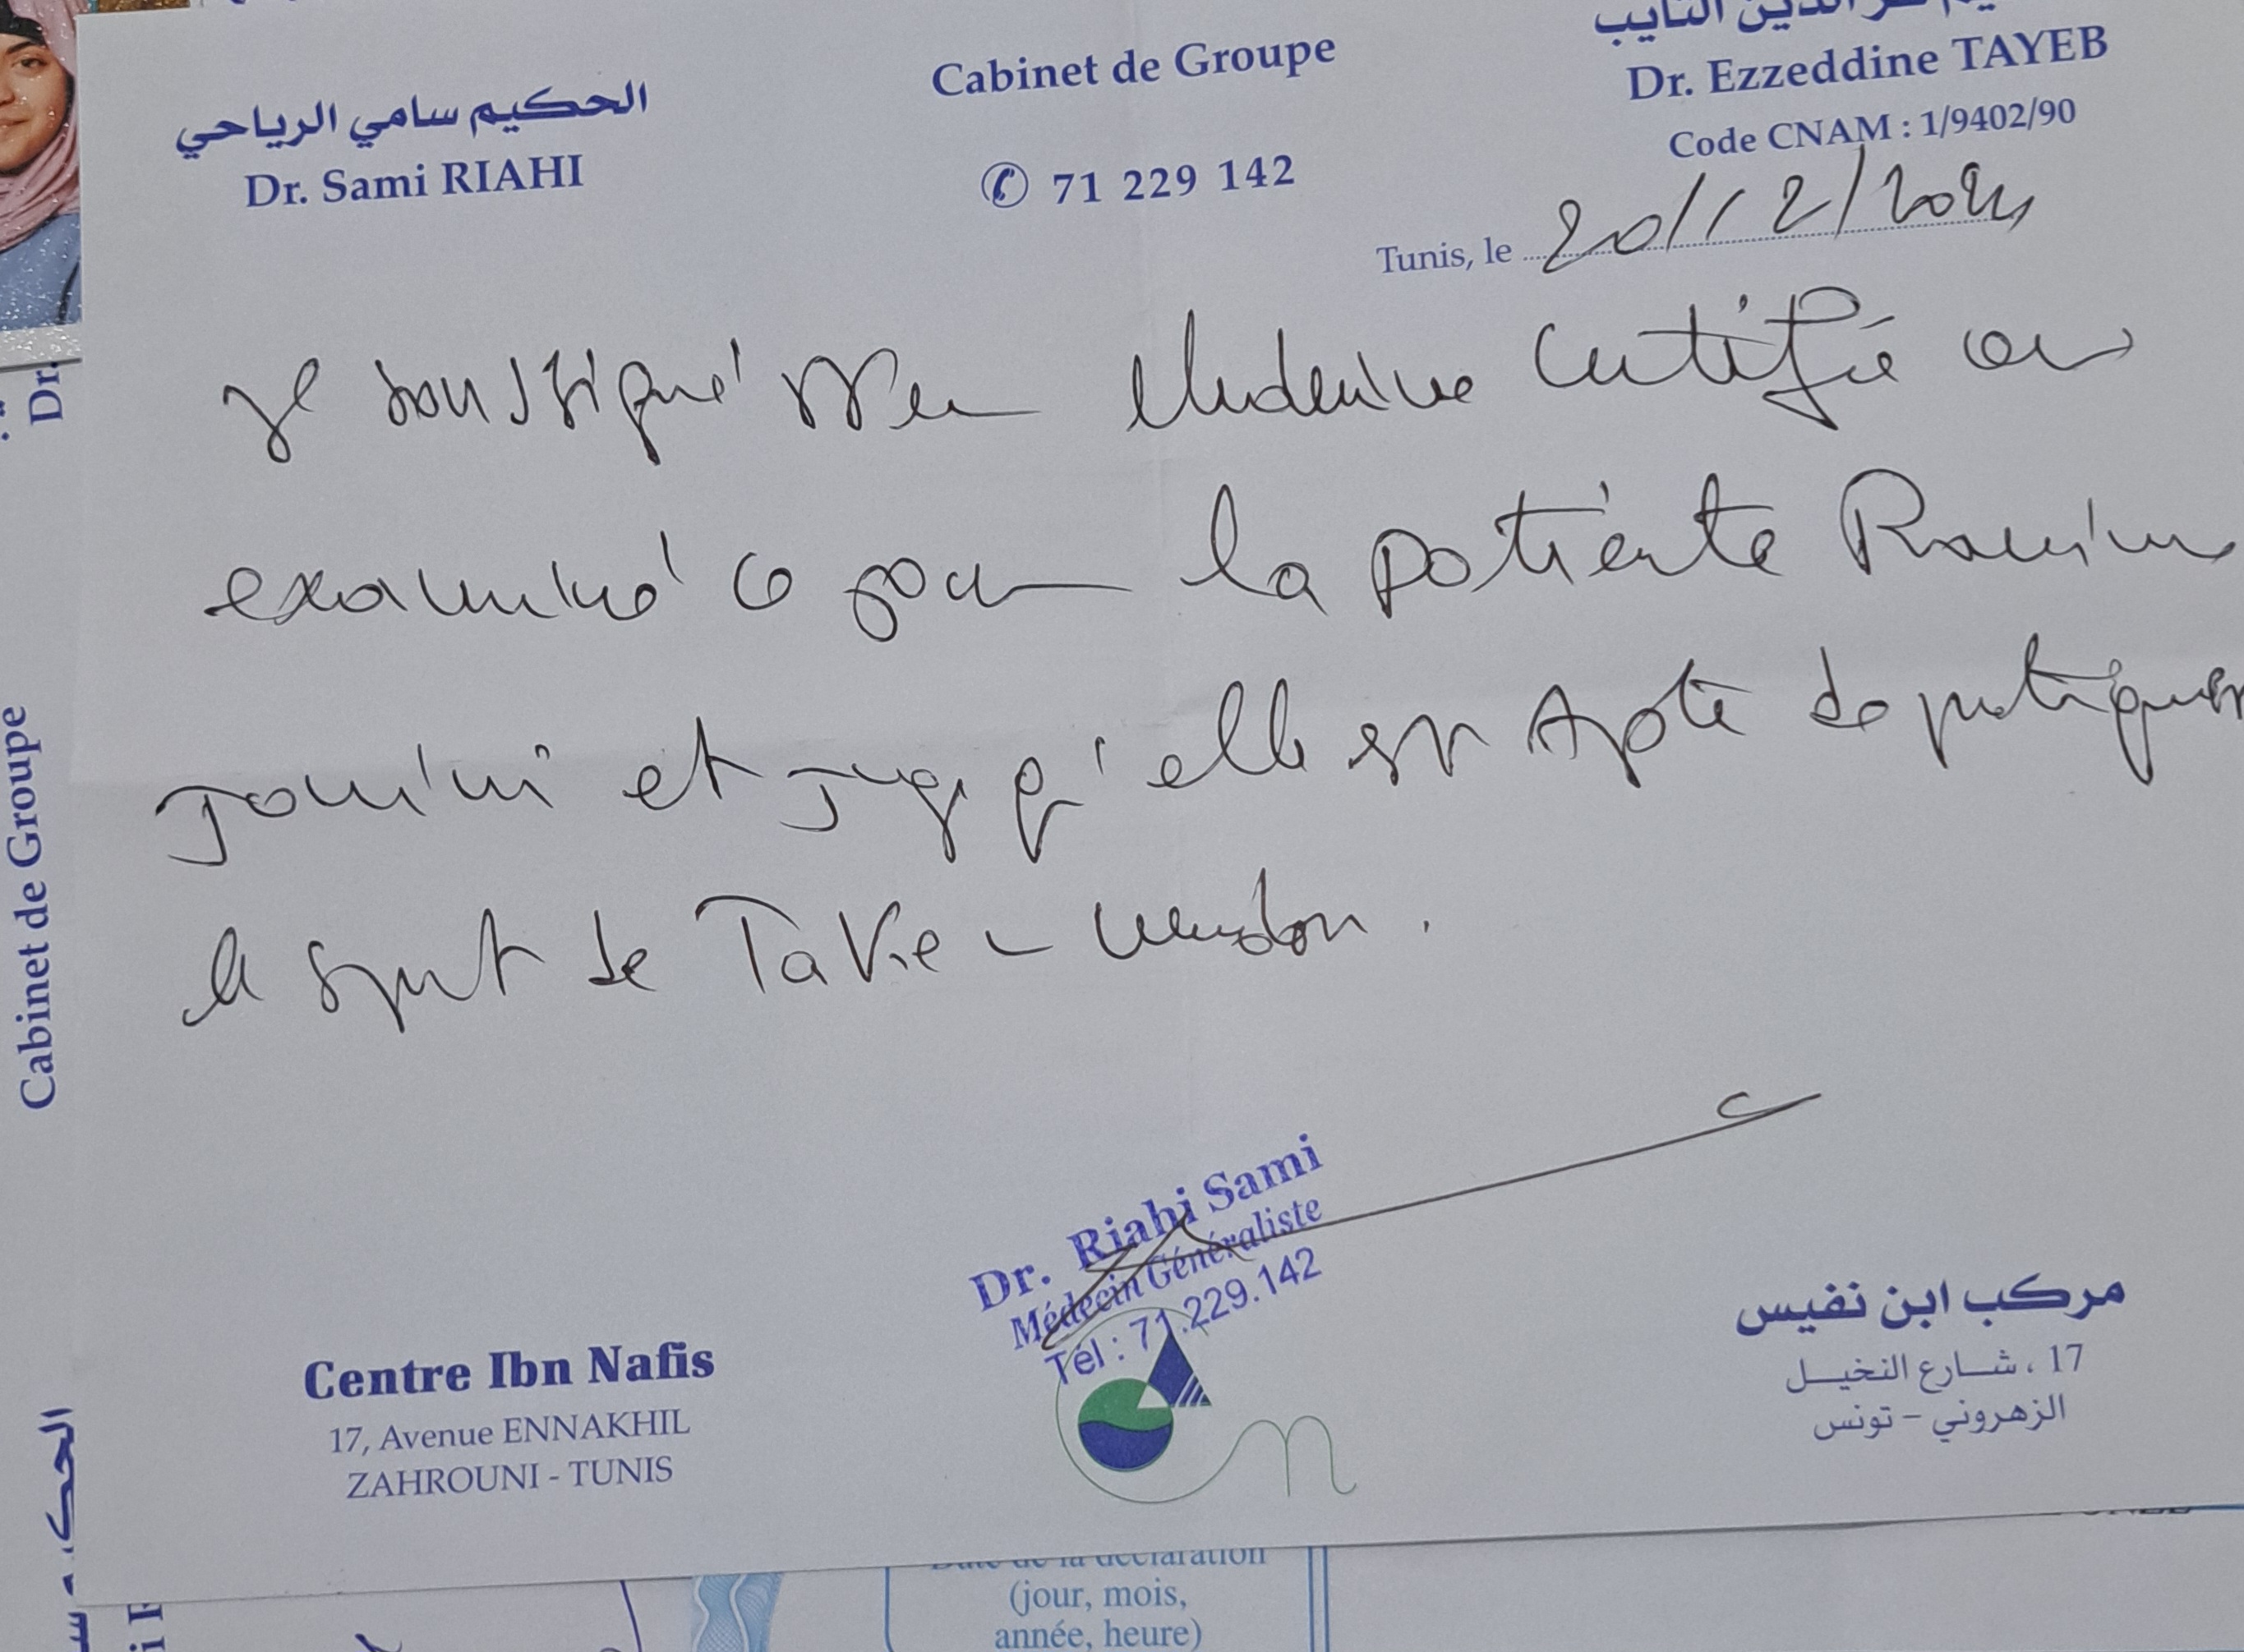 الحكيم سامي الرياحي
Dr. Sami RIAHI
Cabinet de Groupe
✆ 71 229 142
الدين التايب
Dr. Ezzeddine TAYEB
Code CNAM : 1/9402/90
Tunis, le 20/12/2024
Je soussigné Dr en Medecine Certifié avoir
examiné ce jour la patiente Ranim
Jouini et juge qu'elle est Apte de pratiquer
le sport de Taekwondo.
Dr. Riahi Sami
Médecin Généraliste
Tél : 71.229.142
Centre Ibn Nafis
17, Avenue ENNAKHIL
ZAHROUNI - TUNIS
مركب ابن نفيس
17 ، شــارع النخيــل
الزهروني - تونس
Cabinet de Groupe
Dr.
الحك
Date de la déclaration
(jour, mois,
année, heure)